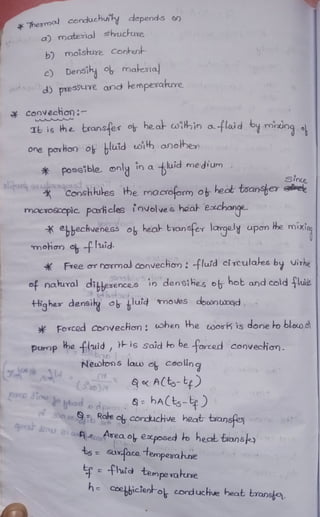 * Thermal conductivity depends on
a) material structure
b) moisture content
c) Density of material
d) pressure and temperature.
* convection :-
It is the transfer of heat within a fluid by mixing of
one portion of fluid with another
* possible only in a fluid medium
* Constitutes the macroform of heat transfer since
macroscopic particles involves heat exchange
* effectiveness of heat transfer largely upon the mixing
motion of fluid.
* Free or normal convection : fluid circulates by virtue
of natural differences in densities of hot and cold fluids
Higher density of fluid moves downward.
* Forced convection : when the work is done to blow or
pump the fluid, it is said to be forced convection.
Newtons law of cooling
Q ∝ A(ts-tf)
Q = hA(ts-tf)
Q = Rate of conductive heat transfer
A = Area of exposed to heat transfer
ts = surface temperature
tf = fluid temperature
h = coefficient of conductive heat transfer.